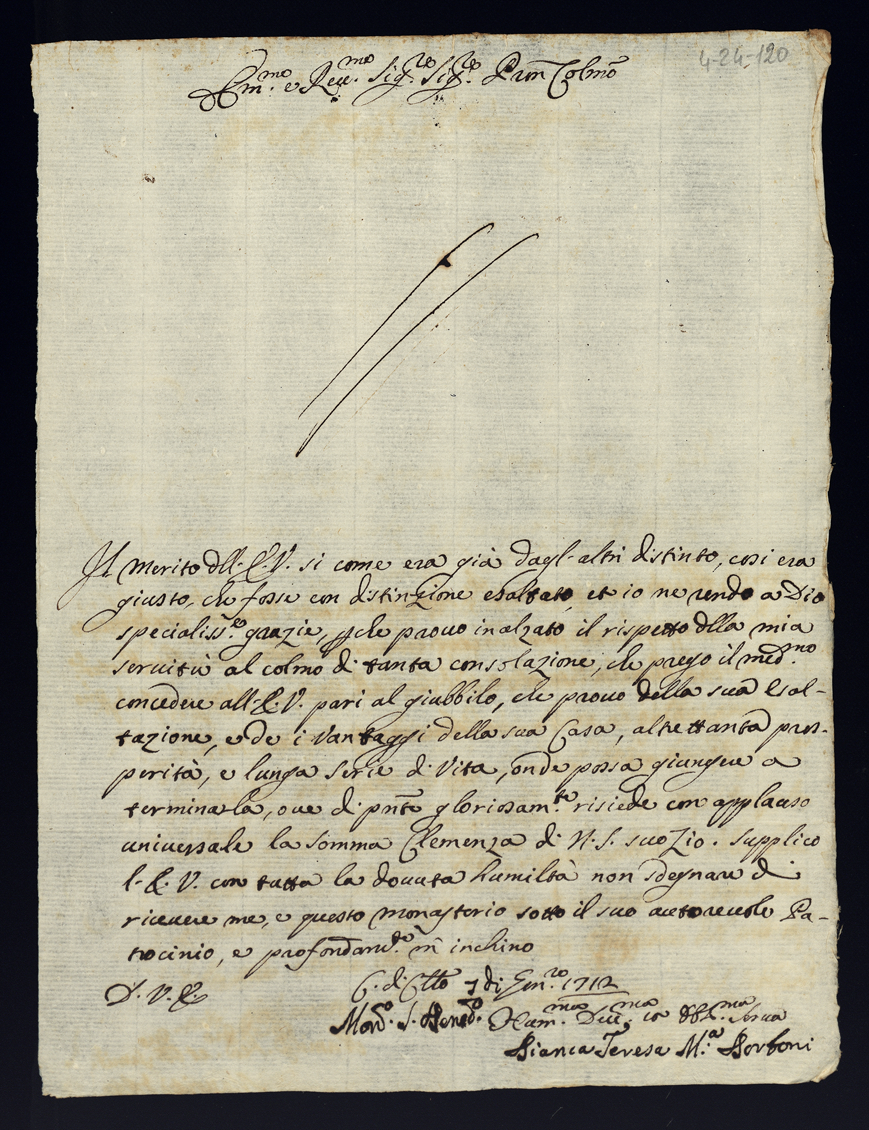 4-24-120
Em.mo e Reu.mo Sig.re Sig.re Pron Colmo
Il merito dll. E. V. si come era già dagl'altri distinto, cosi era
giusto, che fosse con distinzione esaltato, et io ne rendo a Dio
specialiss.e grazie, pche prouo inalzato il rispetto dlla mia
seruitù al colmo di tanta consolazione, che prego il med.mo
concedere all'E. V. pari al giubbilo, che prouo della sua Esal-
tazione, e de i Vantaggi della sua Casa, altrettanta pros-
perità, e lunga serie di Vita, onde possa giungere a
terminarla, oue di pnte gloriosam.te risiede con applauso
uniuersale la somma Clemenza di N. S. suo Zio. supplico
l'E. V. con tutta la douuta humiltà non sdegnare di
riceuere me, e questo monasterio sotto il suo autoreuole Pa-
trocinio, e profondam.te m'inchino
D. V. E.
C. di Cllo 7 di Gen.ro 1712
S. Bened.o Hum.ma Deu.ma Obb.ma Serua
Bianca Teresa M.a Borboni